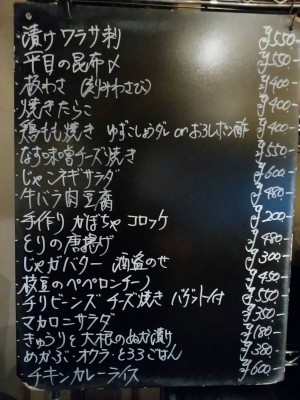 ・漬けワラサ刺 ¥550-
・平目の昆布〆 ¥550-
・板わさ (刻みわさび) ¥400-
・焼きたらこ ¥400-
・鶏もも焼き ゆずこしょうダレ or おろしポン酢 ¥400-
・なす味噌チーズ焼き ¥550-
・じゃこネギサラダ ¥600-
・牛バラ肉豆腐 ¥480-
・手作り かぼちゃ コロッケ ¥200-
・とりの唐揚げ ¥480-
・じゃがバター 酒盗のせ ¥300-
・枝豆のペペロンチーノ ¥450-
・チリビーンズ チーズ焼き バゲット付 ¥550-
・マカロニサラダ ¥350-
・きゅうりと大根のぬか漬け ¥180-
・めかぶ・オクラ・とろろごはん ¥380-
・チキンカレーライス ¥600-